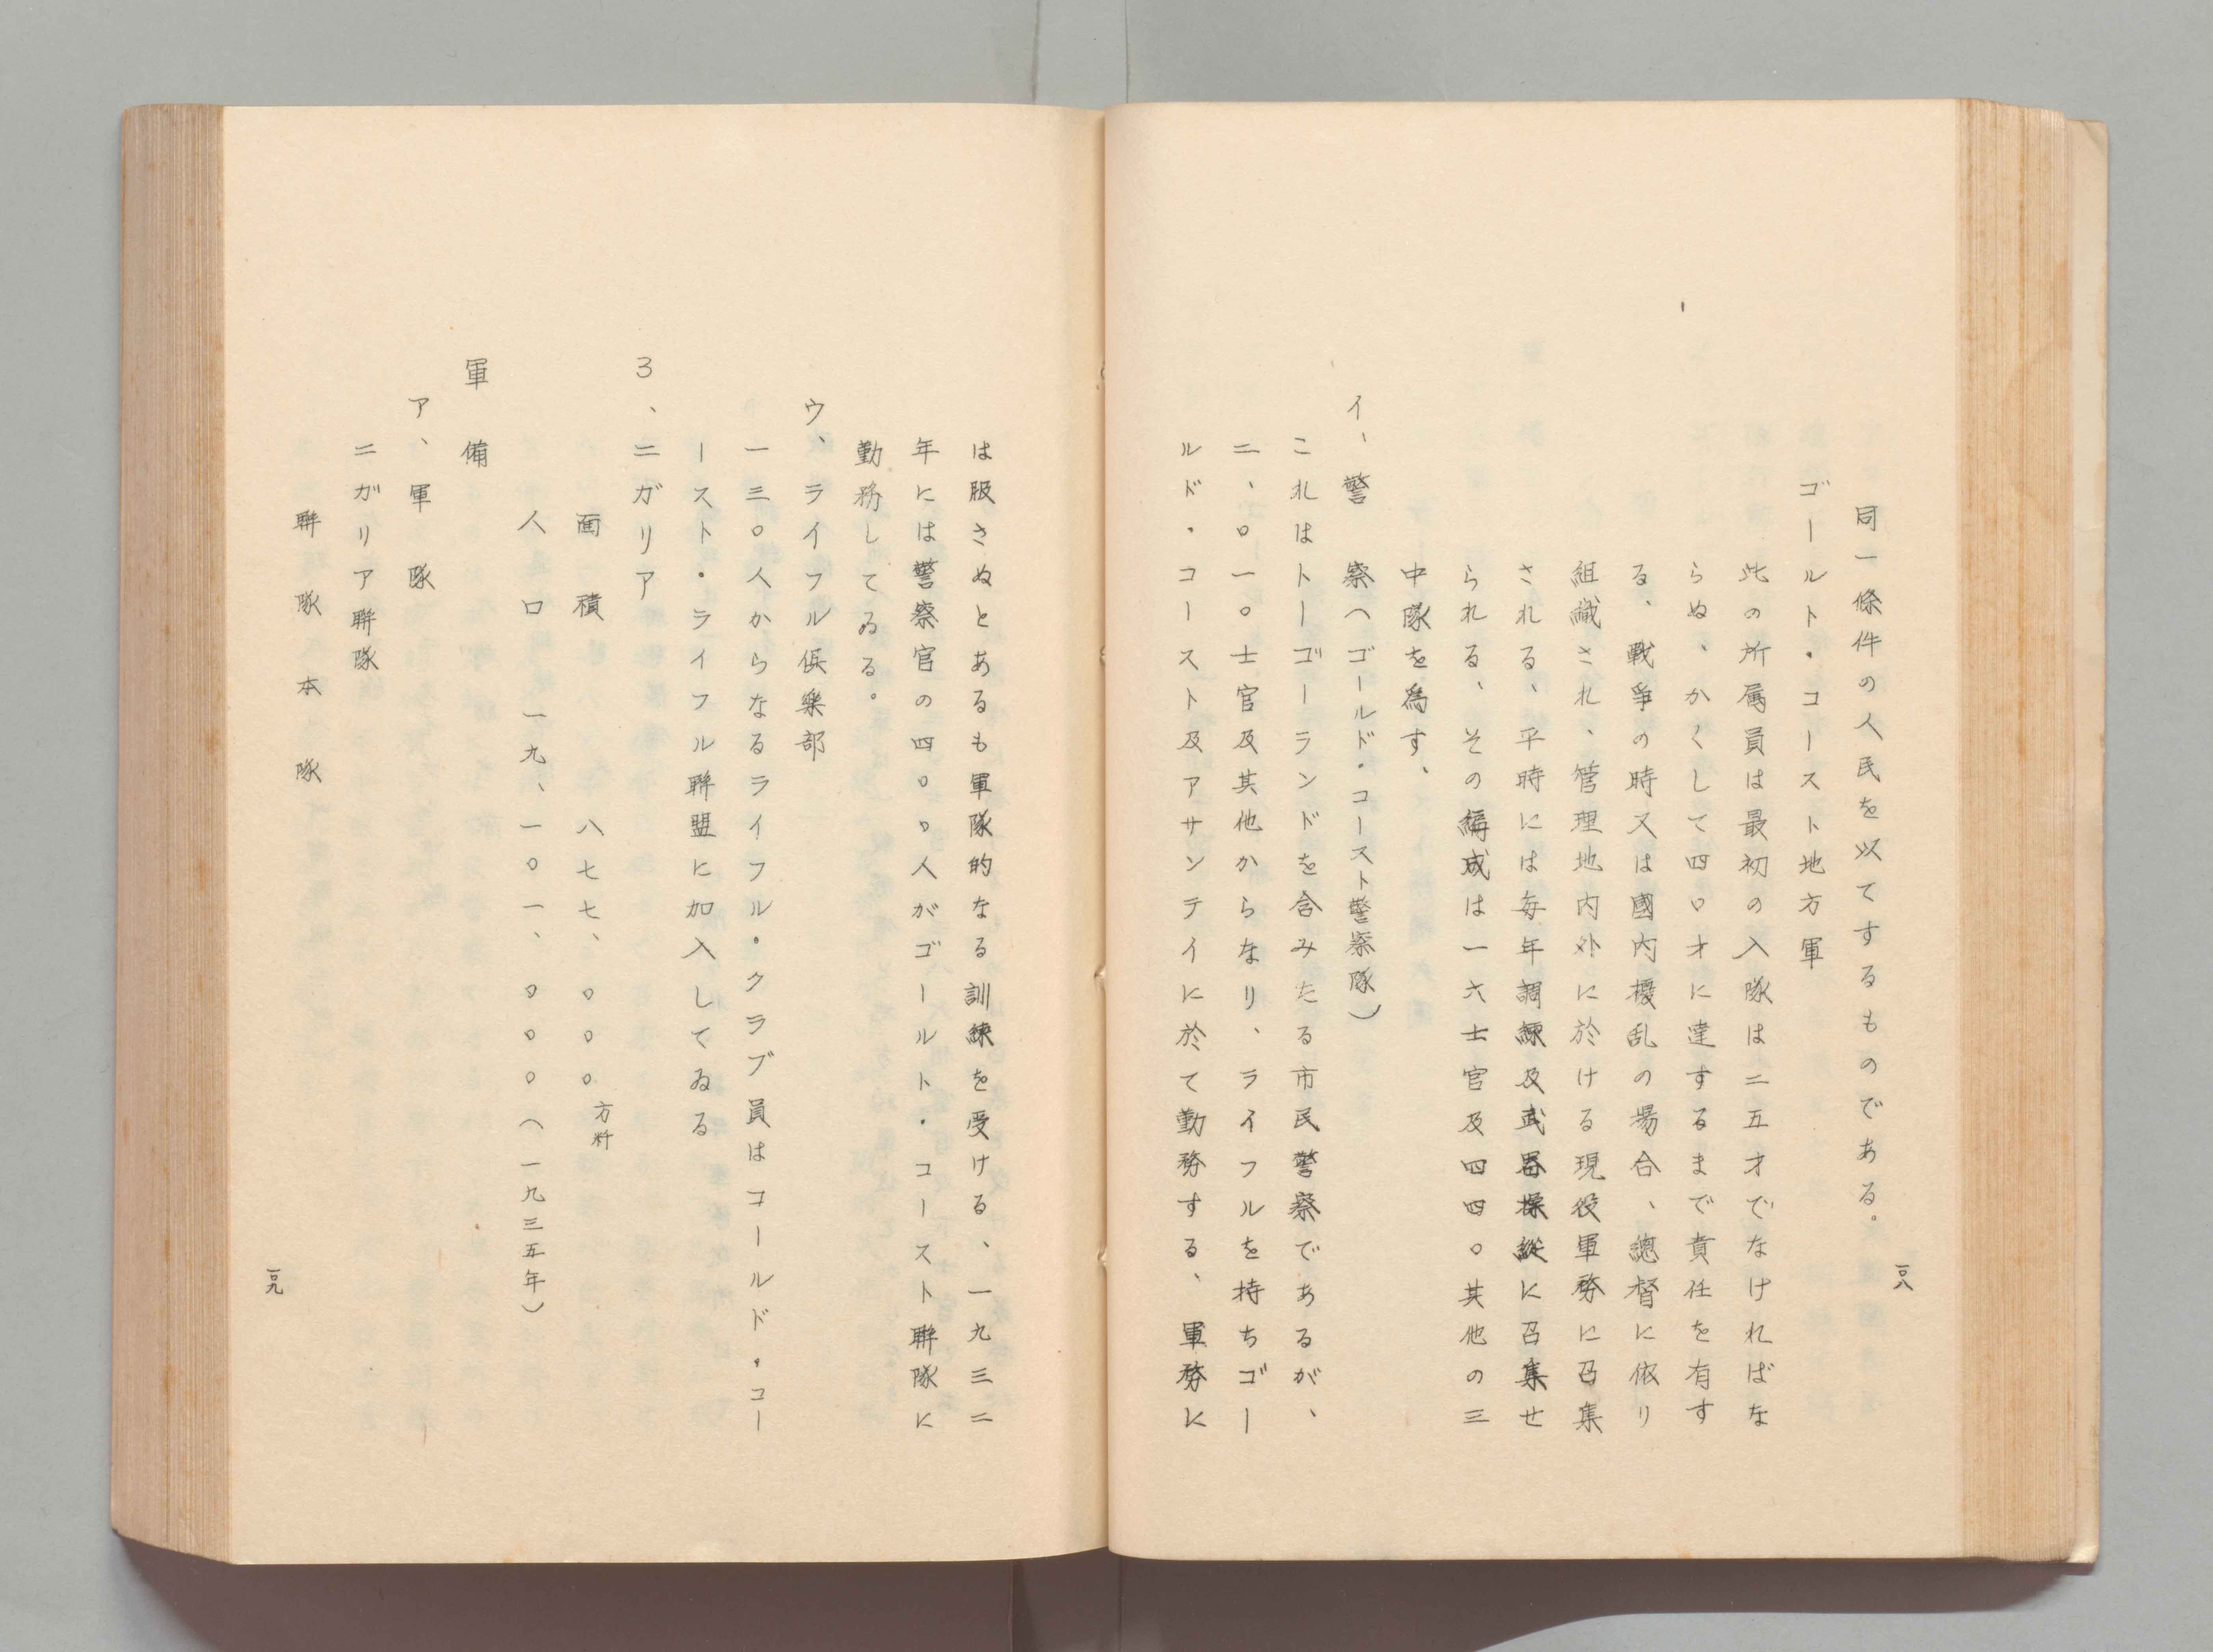 同一條件の人民を以てするものである。
ゴールト・コースト地方軍
此の所属員は最初の入隊は二五才でなければな
らぬ、かくして四〇才に達するまで責任を有す
る、戰爭の時又は國内擾乱の場合、總督に依り
組織され、管理地内外に於ける現役軍務に召集
される、平時には毎年調練及武器操縦に召集せ
られる、その編成は一六士官及四四〇其他の三
中隊を爲す、
イ、警察(ゴールド・コースト警察隊)
これはトーゴーランドを含みたる市民警察であるが、
二、〇一〇士官及其他からなり、ライフルを持ちゴー
ルド・コースト及アサンテイに於て勤務する、軍務に
一〇八
は服さぬとあるも軍隊的なる訓練を受ける、一九三二
年には警察官の四〇〇人がゴールト・コースト聯隊に
勤務してゐる。
ウ、ライフル倶楽部
一三〇人からなるライフル・クラブ員はコールド・コー
ースト・ライフル聯盟に加入してゐる
3、ニガリア
面積 八七七、〇〇〇方粁
人口 一九、一〇一、〇〇〇(一九三五年)
軍備
ア、軍隊
ニガリア聯隊
聯隊本隊
一〇九